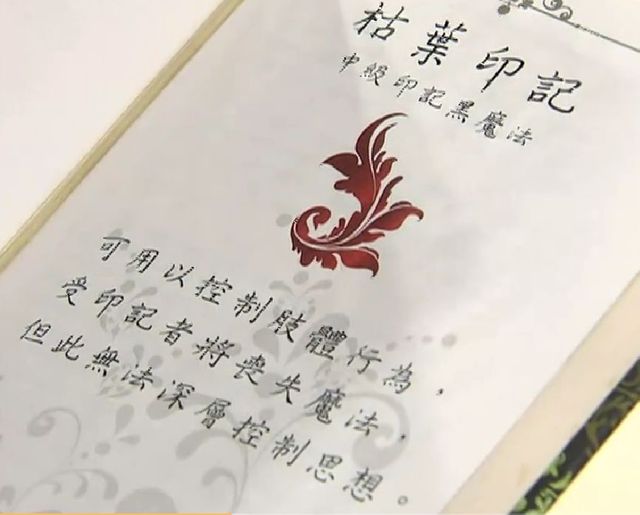 枯葉印記
中級印記黑魔法
可用以控制肢體行為，
受印記者將喪失魔法，
但此無法深層控制思想。